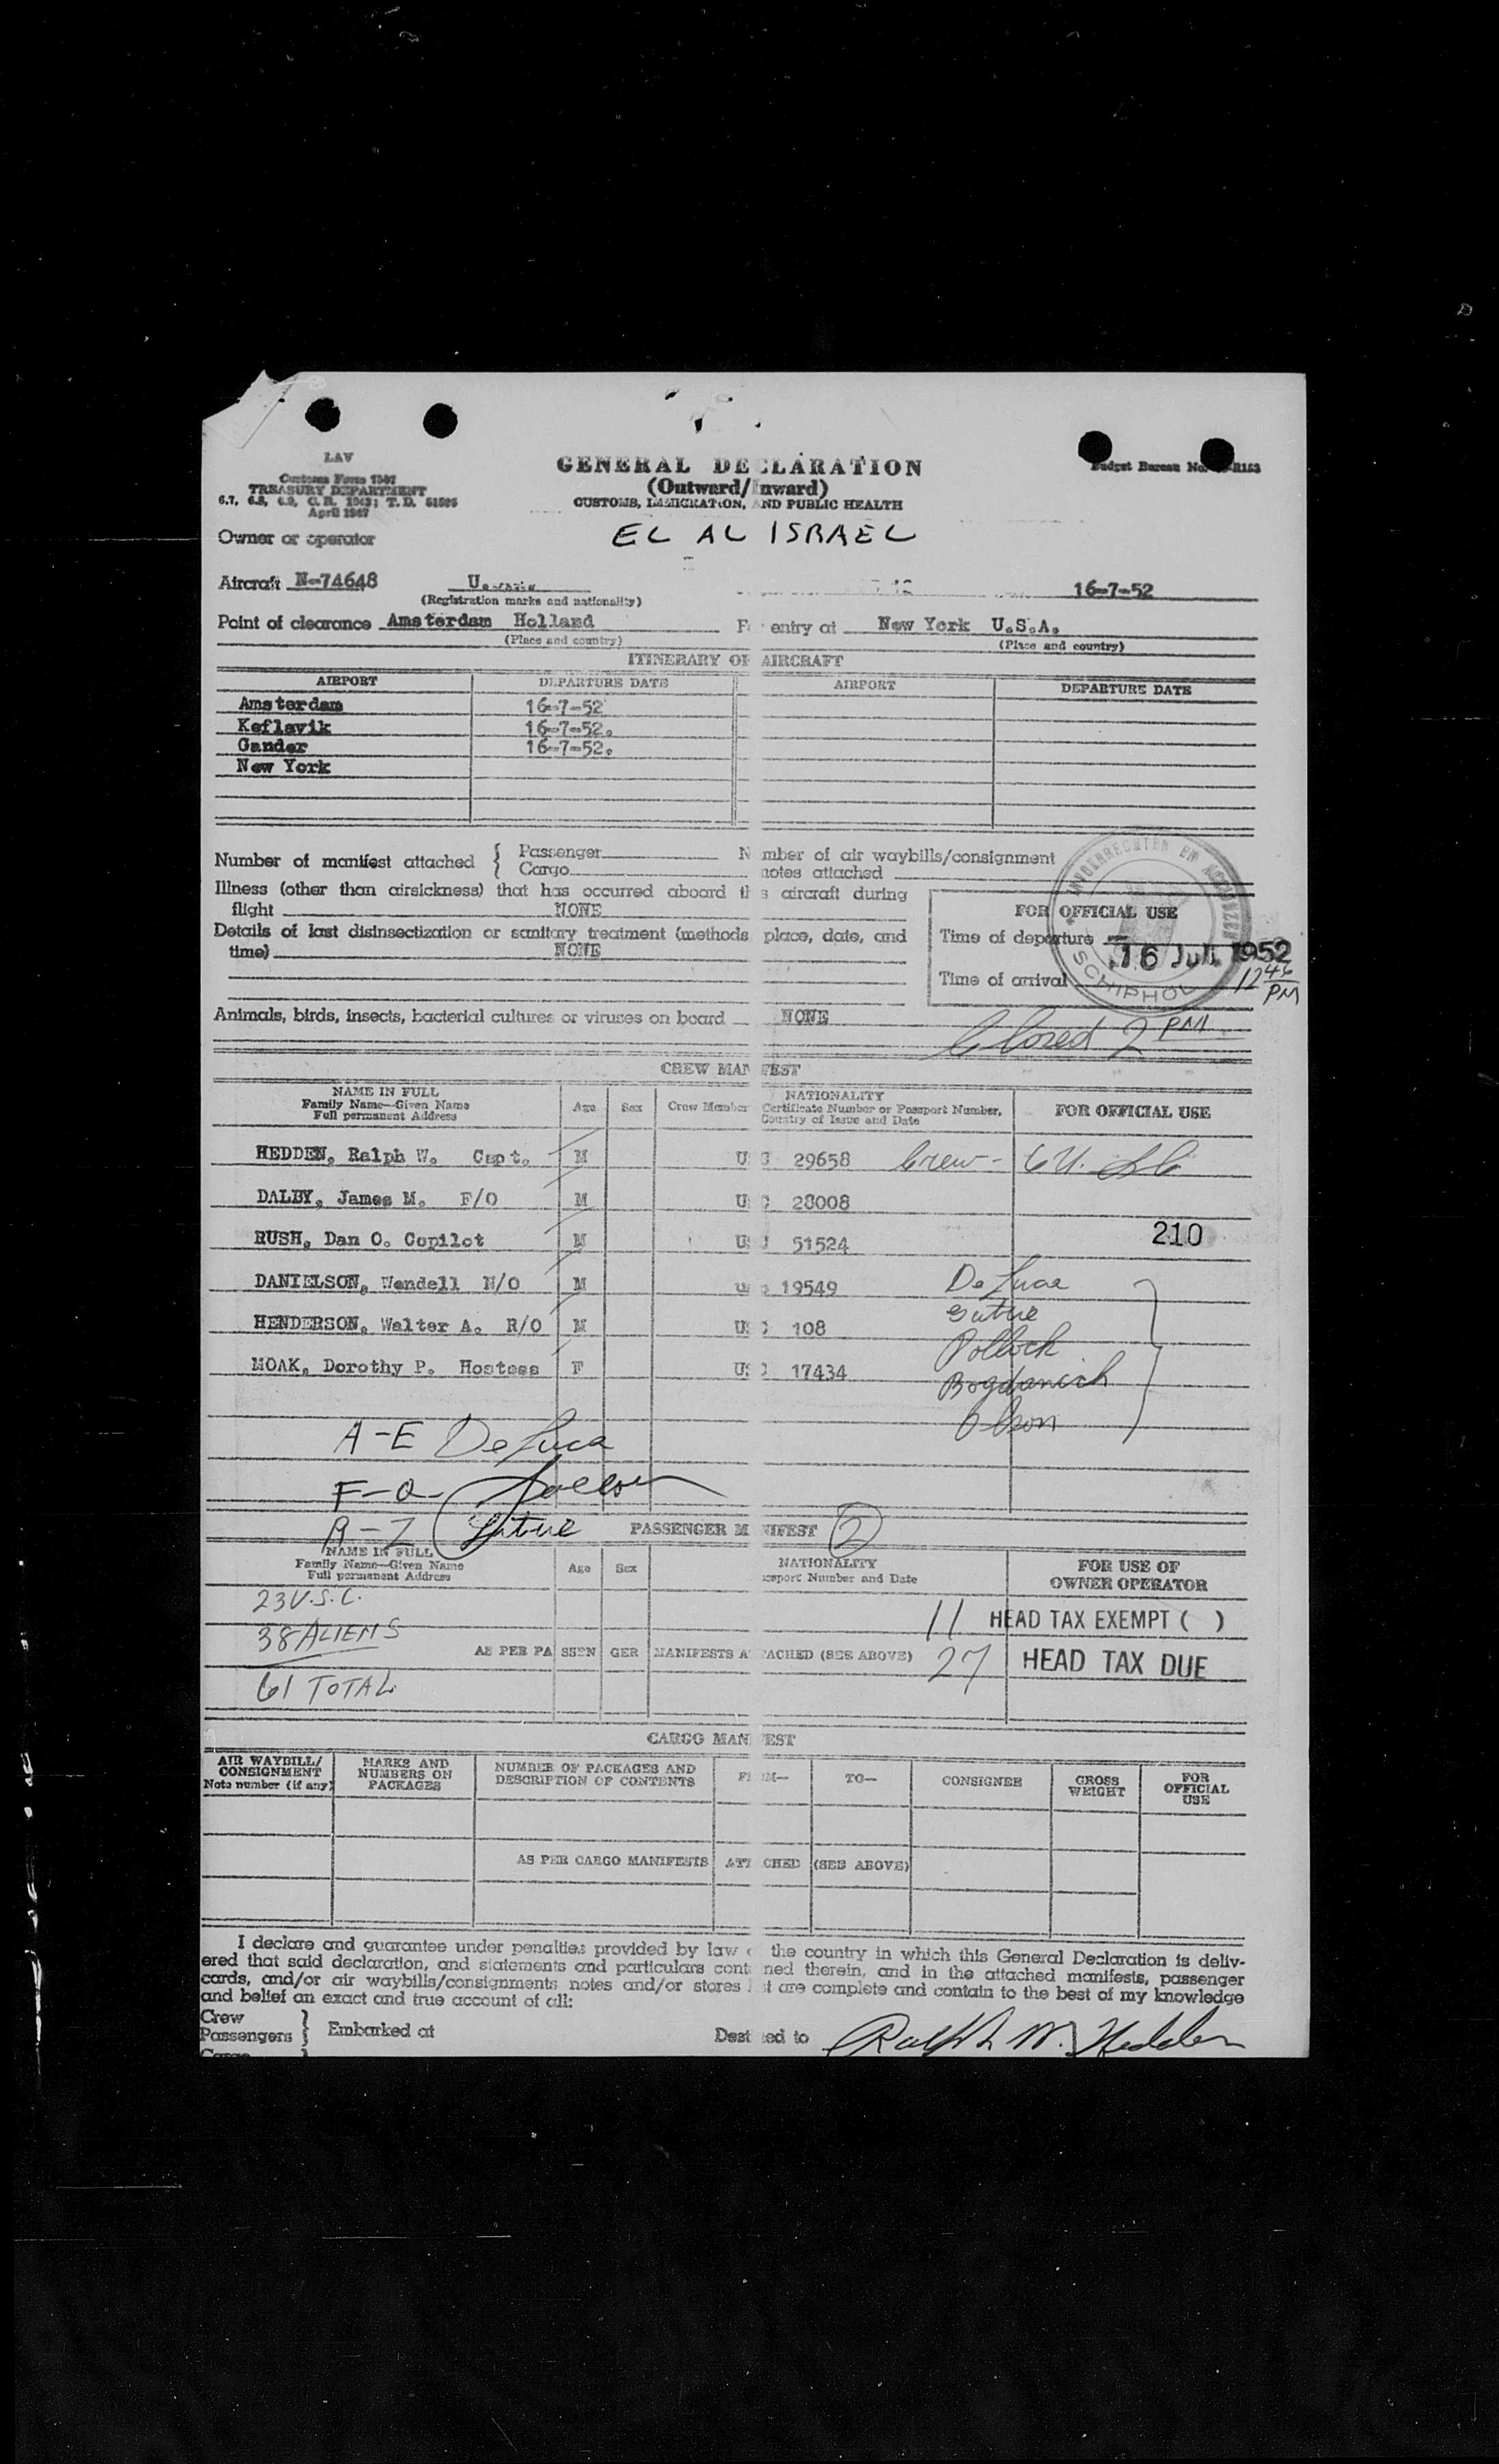 LAV
Customs Form 7507
TREASURY DEPARTMENT
6.7, 6.8, 6.9, C. R. 1943; T. D. 51505
April 1947
GENERAL DECLARATION
(Outward/Inward)
CUSTOMS, IMMIGRATION, AND PUBLIC HEALTH
Budget Bureau No. R153
Owner or operator
EL AL ISRAEL
Aircraft N-74648 U.
16-7-52
(Registration marks and nationality)
Point of clearance Amsterdam Holland
For entry at New York U.S.A.
(Place and country) (Place and country)
ITINERARY OF AIRCRAFT
AIRPORT DEPARTURE DATE AIRPORT DEPARTURE DATE
Amsterdam 16-7-52
Keflavik 16-7-52.
Gander 16-7-52.
New York
Number of manifest attached { Passenger
Cargo
Number of air waybills/consignment
notes attached
Illness (other than airsickness) that has occurred aboard this aircraft during
flight NONE
Details of last disinsectization or sanitary treatment (methods place, date, and
time) NONE
FOR OFFICIAL USE
Time of departure
16 Juli 1952
Time of arrival
12 46 PM
INVOERRECHTEN EN ACCIJNZEN
SCHIPHOL
Animals, birds, insects, bacterial cultures or viruses on board NONE
Closed 2 PM
CREW MANIFEST
NAME IN FULL
Family Name—Given Name
Full permanent Address
Age Sex Crew Member
NATIONALITY
Certificate Number or Passport Number,
Country of Issue and Date
FOR OFFICIAL USE
HEDDEN, Ralph W. Capt. M 29658 Crew-
DALBY, James M. F/O M 28008
RUSH, Dan O. Copilot M 51524
210
DANIELSON, Wendell N/O M 19549 De Luca
HENDERSON, Walter A. R/O M 108
Pollock
MOAK, Dorothy P. Hostess F 17434
Bogdanich
Olson
A-E De Luca
F-Q-
R-Z
PASSENGER MANIFEST 2
NAME IN FULL
Family Name—Given Name
Full permanent Address
Age Sex
NATIONALITY
Passport Number and Date
FOR USE OF
OWNER OPERATOR
23 U.S.C.
11 HEAD TAX EXEMPT ( )
38 ALIENS
AS PER PASSENGER MANIFESTS ATTACHED (SEE ABOVE)
27 HEAD TAX DUE
61 TOTAL
CARGO MANIFEST
AIR WAYBILL/
CONSIGNMENT
Note number (if any)
MARKS AND
NUMBERS ON
PACKAGES
NUMBER OF PACKAGES AND
DESCRIPTION OF CONTENTS
FROM—
TO—
CONSIGNEE
GROSS
WEIGHT
FOR
OFFICIAL
USE
AS PER CARGO MANIFESTS ATTACHED (SEE ABOVE)
I declare and guarantee under penalties provided by law of the country in which this General Declaration is deliv-
ered that said declaration, and statements and particulars contained therein, and in the attached manifests, passenger
cards, and/or air waybills/consignments notes and/or stores list are complete and contain to the best of my knowledge
and belief an exact and true account of all:
Crew
Passengers } Embarked at
Destined to
Ralph W. Hedden
Cargo